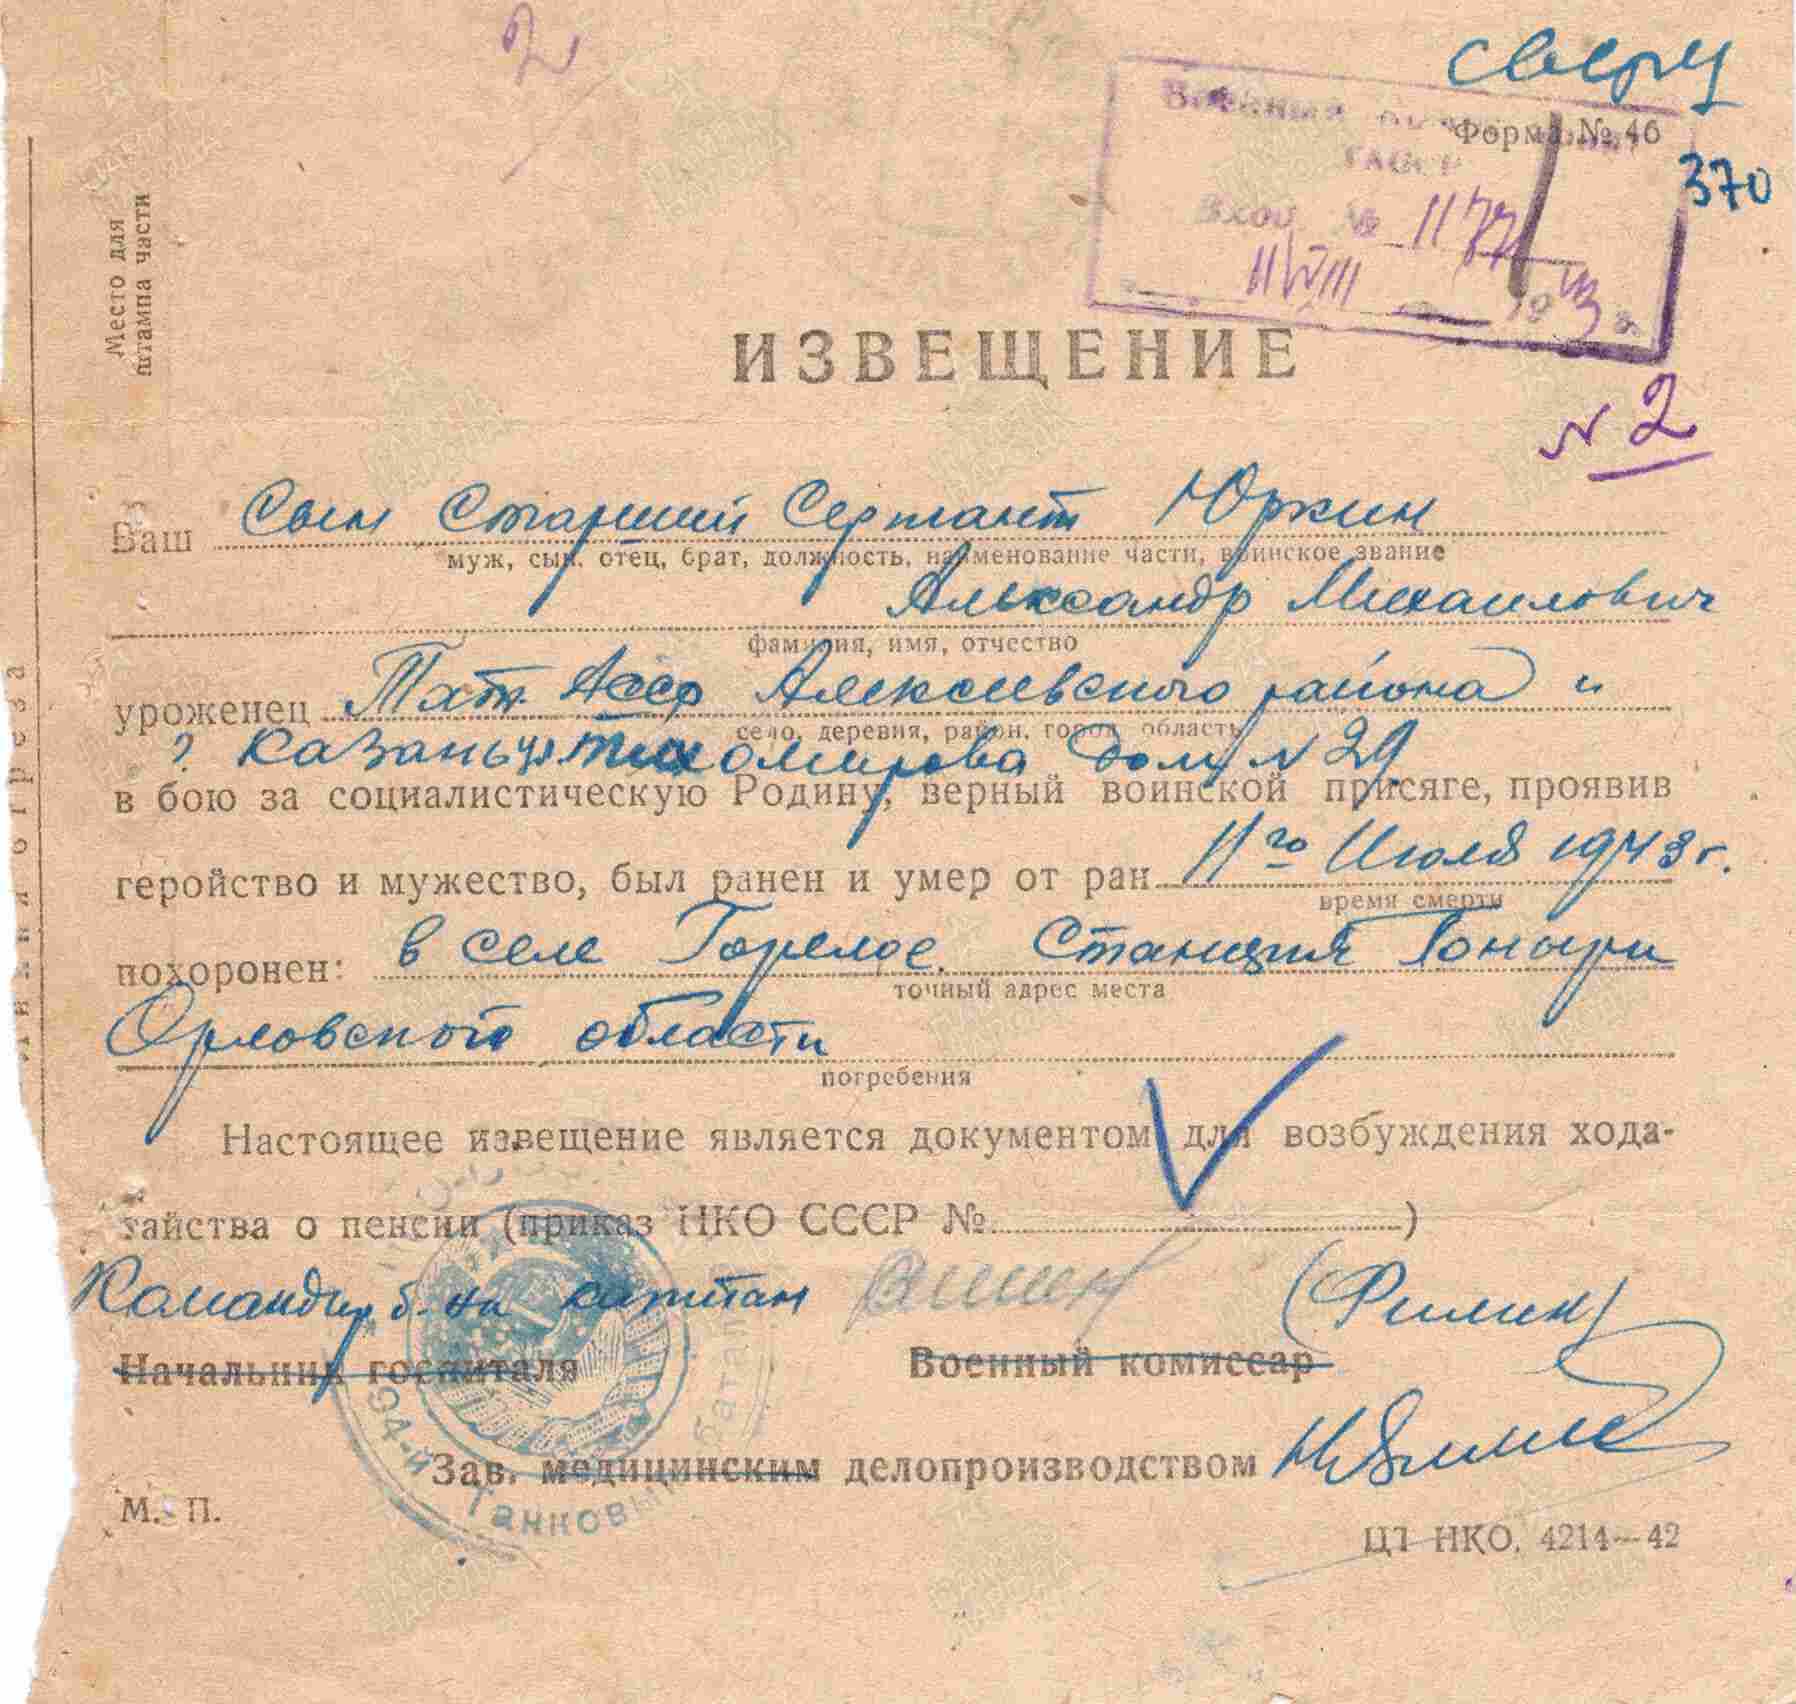 2
сверц
Форма № 46
370
Военный
ТАССР
Вход. № 1177
11/VIII 1943 г.
Место для
штампа части
ИЗВЕЩЕНИЕ
N 2
Ваш Сын Старший Сержант Юркин
муж, сын, отец, брат, должность, наименование части, воинское звание
Александр Михаилович
фамилия, имя, отчество
уроженец Тат. АССР Алексеевского района
село, деревня, район, город, область
г Казань ул Тихомирова дом N 29
в бою за социалистическую Родину, верный воинской присяге, проявив
геройство и мужество, был ранен и умер от ран 11го Июля 1943 г.
время смерти
похоронен: в селе Горелое. Станция Поныри
точный адрес места
Орловской области
погребения
Настоящее извещение является документом для возбуждения хода-
тайства о пенсии (приказ НКО СССР № )
Командир б-на капитан (Филин)
Начальник госпиталя Военный комиссар
Зав. медицинским делопроизводством
М. П.
Танковый батальон
ЦТ НКО. 4214—42
Линия отреза
ПАМЯТЬ НАРОДА